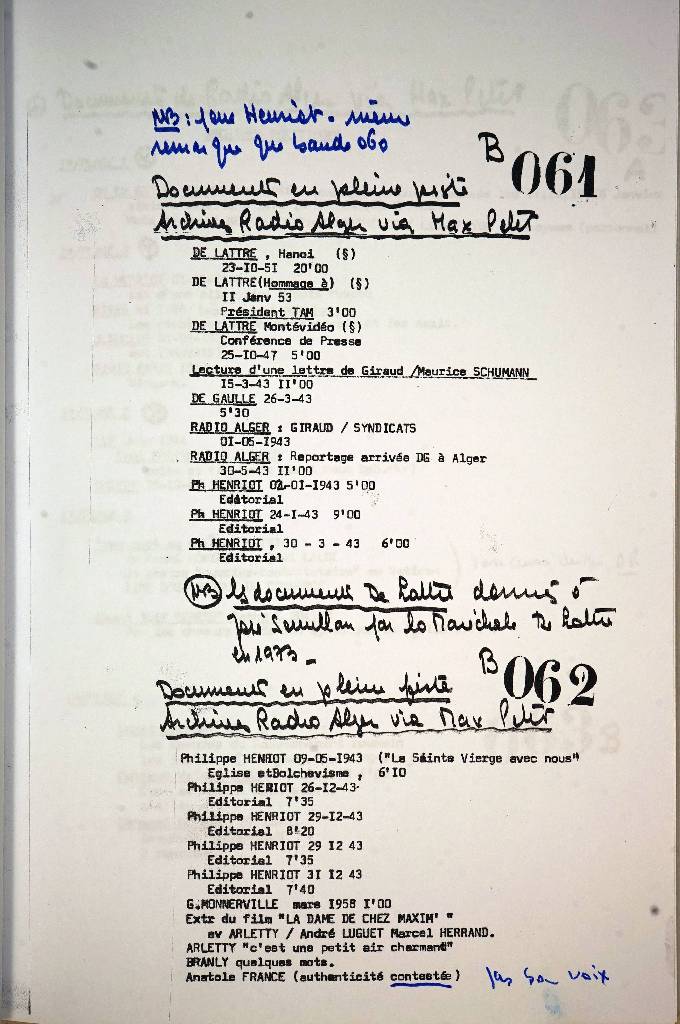 NB: pour Henriot. même
remarque que bande 060
B 061
Documents en pleine piste
Archives Radio Alger via Max Petit
DE LATTRE , Hanoi (§)
23-IO-5I 20'00
DE LATTRE(Hommage à) (§)
II Janv 53
Président TAM 3'00
DE LATTRE Montévidéo (§)
Conférence de Presse
25-IO-47 5'00
Lecture d'une lettre de Giraud /Maurice SCHUMANN
I5-3-43 II'00
DE GAULLE 26-3-43
5'30
RADIO ALGER : GIRAUD / SYNDICATS
OI-05-I943
RADIO ALGER : Reportage arrivée DG à Alger
30-5-43 II'00
Ph HENRIOT 02-0I-I943 5'00
Editorial
Ph HENRIOT 24-I-43 9'00
Editorial
Ph HENRIOT , 30 - 3 - 43 6'00
Editorial
NB les documents De Lattre donnés à
par la Maréchale De Lattre
en 1973 _
B 062
Documents en pleine piste
Archives Radio Alger via Max Petit
Philippe HENRIOT 09-05-I943 ("La Sainte Vierge avec nous"
Eglise etBolchevisme , 6'IO
Philippe HERIOT 26-I2-43-
Editorial 7'35
Philippe HENRIOT 29-I2-43
Editorial 8'20
Philippe HENRIOT 29 I2 43
Editorial 7'35
Philippe HENRIOT 3I I2 43
Editorial 7'40
G.MONNERVILLE mars I958 I'00
Extr du film "LA DAME DE CHEZ MAXIM' "
av ARLETTY / André LUGUET Marcel HERRAND.
ARLETTY "c'est une petit air charmant"
BRANLY quelques mots.
Anatole FRANCE (authenticité contestée) pas son voix